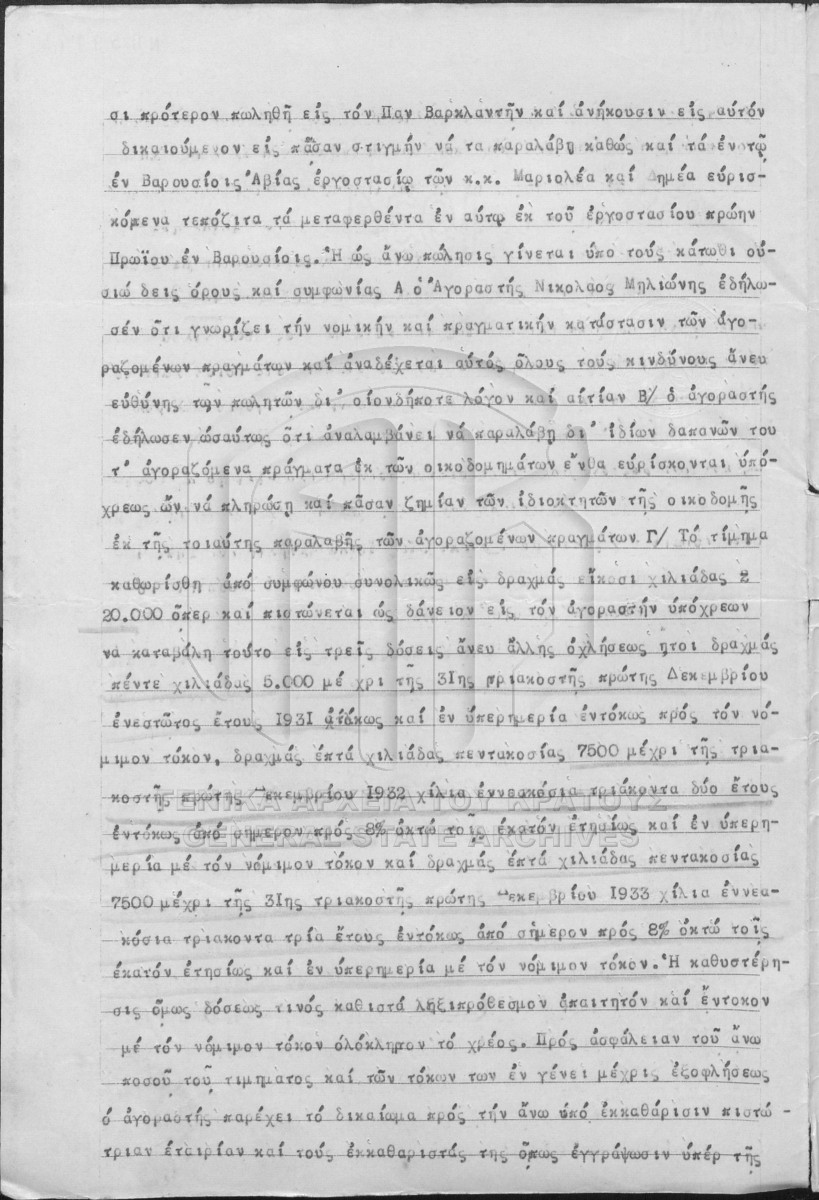 σι πρότερον πωληθῆ εἰς τόν Παν Βαρκλαντῆν καί ἀνήκουσιν εἰς αὐτόν
δικαιούμενον εἰς πᾶσαν στιγμήν νά τα παραλάβῃ καθώς καί τά ἐν τῷ
ἐν Βαρουσίοις Ἀβίας ἐργοστασίῳ τῶν κ.κ. Μαριολέα καί Δημέα εὑρισ-
κόμενα τεπόζιτα τά μεταφερθέντα ἐν αὐτῳ ἐκ τοῦ ἐργοστασίου πρώην
Πρωΐου ἐν Βαρουσίοις. Ἡ ὡς ἄνω πώλησις γίνεται ὑπο τούς κάτωθι οὐ-
σιώδεις ὅρους καί συμφωνίας Α ὁ Ἀγοραστής Νικολαος Μηλιώνης ἐδήλω-
σέν ὅτι γνωρίζει τήν νομικήν καί πραγματικήν κατάστασιν τῶν ἀγο-
ραζομένων πραγμάτων καί ἀναδέχεται αὐτός ὅλους τούς κινδύνους ἄνευ
εὐθύνης τῶν πωλητῶν δι' οἱονδήποτε λόγον καί αἰτίαν Β/ ὁ ἀγοραστής
ἐδήλωσεν ὡσαύτως ὅτι ἀναλαμβάνει νά παραλάβῃ δι' ἰδίων δαπανῶν του
τ' ἀγοραζόμενα πράγματα ἐκ τῶν οἰκοδομημάτων ἔνθα εὑρίσκονται ὑπό-
χρεως ὤν νά πληρώσῃ καί πᾶσαν ζημίαν τῶν ἰδιοκτητῶν τῆς οἰκοδομῆς
ἐκ τῆς τοιαύτης παραλαβῆς τῶν ἀγοραζομένων πραγμάτων Γ/ Τό τίμημα
καθωρίσθη ἀπό συμφώνου συνολικῶς εἰς δραχμάς εἴκοσι χιλιάδας
20.000 ὅπερ καί πιστώνεται ὡς δάνειον εἰς τόν ἀγοραστήν ὑπόχρεων
νά καταβάλη τοῦτο εἰς τρεῖς δόσεις ἄνευ ἄλλης ὀχλήσεως ἤτοι δραχμάς
πέντε χιλιάδας 5.000 μέ χρι τῆς 31ης τριακοστῆς πρώτης Δεκεμβρίου
ἐνεστῶτος ἔτους 1931 ἀτόκως καί ἐν ὑπερημερία ἐντόκως πρός τόν νό-
μιμον τόκον, δραχμάς ἑπτά χιλιάδας πεντακοσίας 7500 μέχρι τῆς τρια-
κοστῆς πρώτης Δεκεμβρίου 1932 χίλια ἐννεακόσια τριάκοντα δύο ἔτους
ἐντόκως ἀπό σήμερον πρός 8% ὀκτώ τοῖς ἑκατόν ἐτησίως καί ἐν ὑπερη-
μερία μέ τόν νόμιμον τόκον καί δραχμάς ἑπτά χιλιάδας πεντακοσίας
7500 μέχρι τῆς 31ης τριακοστῆς πρώτης Δεκεμβρίου 1933 χίλια ἐννεα-
κόσια τριακοντα τρία ἔτους ἐντόκως ἀπό σήμερον πρός 8% ὀκτώ τοῖς
ἑκατόν ἐτησίως καί ἐν ὑπερημερία μέ τόν νόμιμον τόκον. Ἡ καθυστέρη-
σις ὅμως δόσεως τινός καθιστᾶ ληξιπρόθεσμον ἀπαιτητόν καί ἔντοκον
μέ τόν νόμιμον τόκον ὁλόκληρον τό χρέος. Πρός ἀσφάλειαν τοῦ ἄνω
ποσοῦ τοῦ τιμηματος καί τῶν τόκων των ἐν γένει μέχρις ἐξοφλήσεως
ὁ ἀγοραστής παρέχει τό δικαίωμα πρός τήν ἄνω ὑπό ἐκκαθάρισιν πιστώ-
τριαν ἑταιρίαν καί τούς ἐκκαθαριστάς της ὅπως ἐγγράψωσιν ὑπέρ τῆς
ΓΕΝΙΚΑ ΑΡΧΕΙΑ ΤΟΥ ΚΡΑΤΟΥΣ
GENERAL STATE ARCHIVES